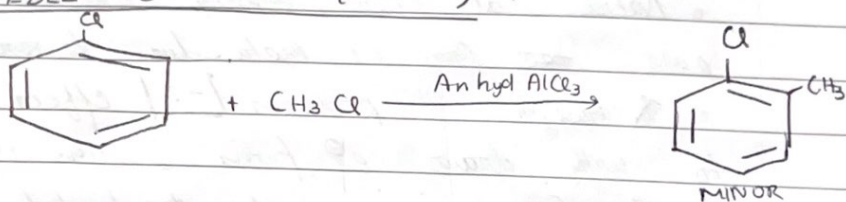 Cl
+ CH3 Cl
Anhyd AlCl3
Cl
CH3
MINOR